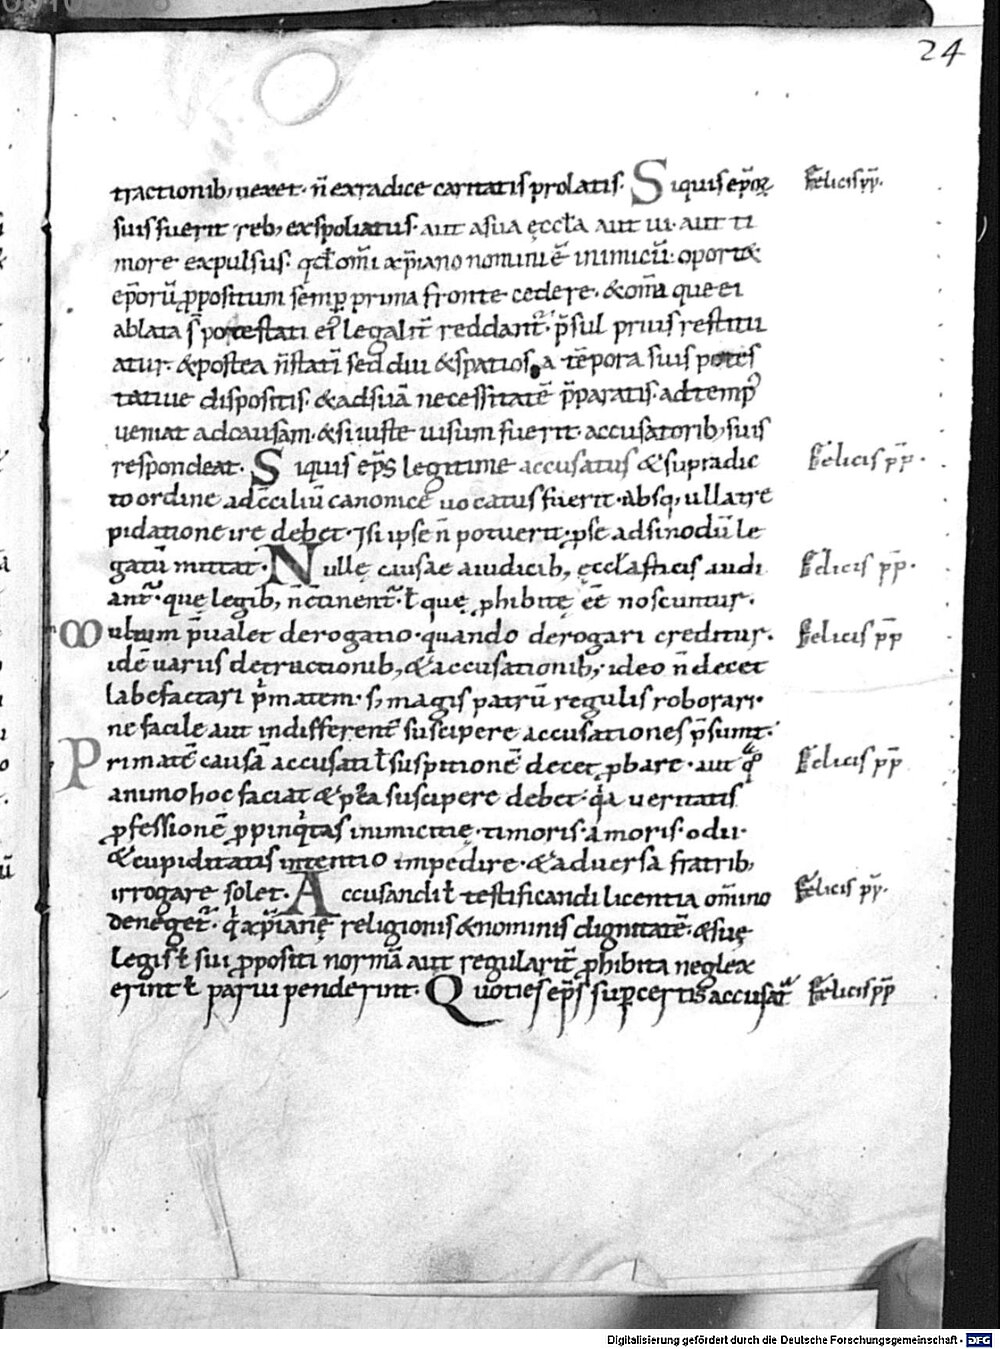 24
tractionib; uexet· n̄ ex radice caritatis prolatis· Si quis ep̄oꝝ Felicis pp̄.
suis fuerit reb; expoliatus· aut a sua ęccła aut ui· aut ti
more expulsus· qđ om̄i xp̄iano nomini ē inimicū· oportet
ep̄orū ꝓpositum semꝑ prima fronte cedere· & om̄ia que ei
ablata s̄ potestati ei' legalit̄ reddant̄· p̄sul prius restitu
atur· & postea n̄ statī sed diu & spatiosa tēpora suis potes
tatiue dispositis· & ad suā necessitatē p̄paratis· ad temp'
ueniat ad causam· & si iuste uisum fuerit· accusatorib; suis
respondeat· Si quis ep̄s legitime accusatus & supradic Felicis pp̄.
to ordine ad c̄ciliū canonice uocatus fuerit· absq; ulla tre
pidatione ire debet· Si ipse n̄ potuerit· ꝑ se ad sinodū le
gatū mittat· Nullę causae a iudicib; ęccłasticis audi Felicis pp̄.
ant̄· quę legib; n̄ c̄tinent̄· ł quę ꝓhibitę eē noscuntur·
Multum p̄ualet derogatio· quando derogari creditur. Felicis pp̄
idē uariis detractionib; & accusationib; ideo n̄ decet
labefactari p'matem· s; magis patrū regulis roborari·
ne facile aut indifferent̄ suscipere accusationes p̄sumt̄·
Primatē causā accusati ł suspitionē decet ꝓbare· aut q° Felicis pp̄
animo hoc faciat & p̄ea suscipere debet· qa ueritatis
ꝓfessionē ꝓpinqtas inimicitię· timoris· amoris· odii·
& cupiditatis intentio impedire· & aduersa fratrib;
irrogare solet· Accusandi ł testificandi licentia om̄ino Felicis pp̄.
deneget̄· qi xp̄ianę religionis & nominis dignitatē· & suę
legis ł sui ꝓpositi normā aut regularit̄ ꝓhibita neglex
erint ł parui penderint· Quoties ep̄s sup certis accusat̄ Felicis pp̄
Digitalisierung gefördert durch die Deutsche Forschungsgemeinschaft - DFG